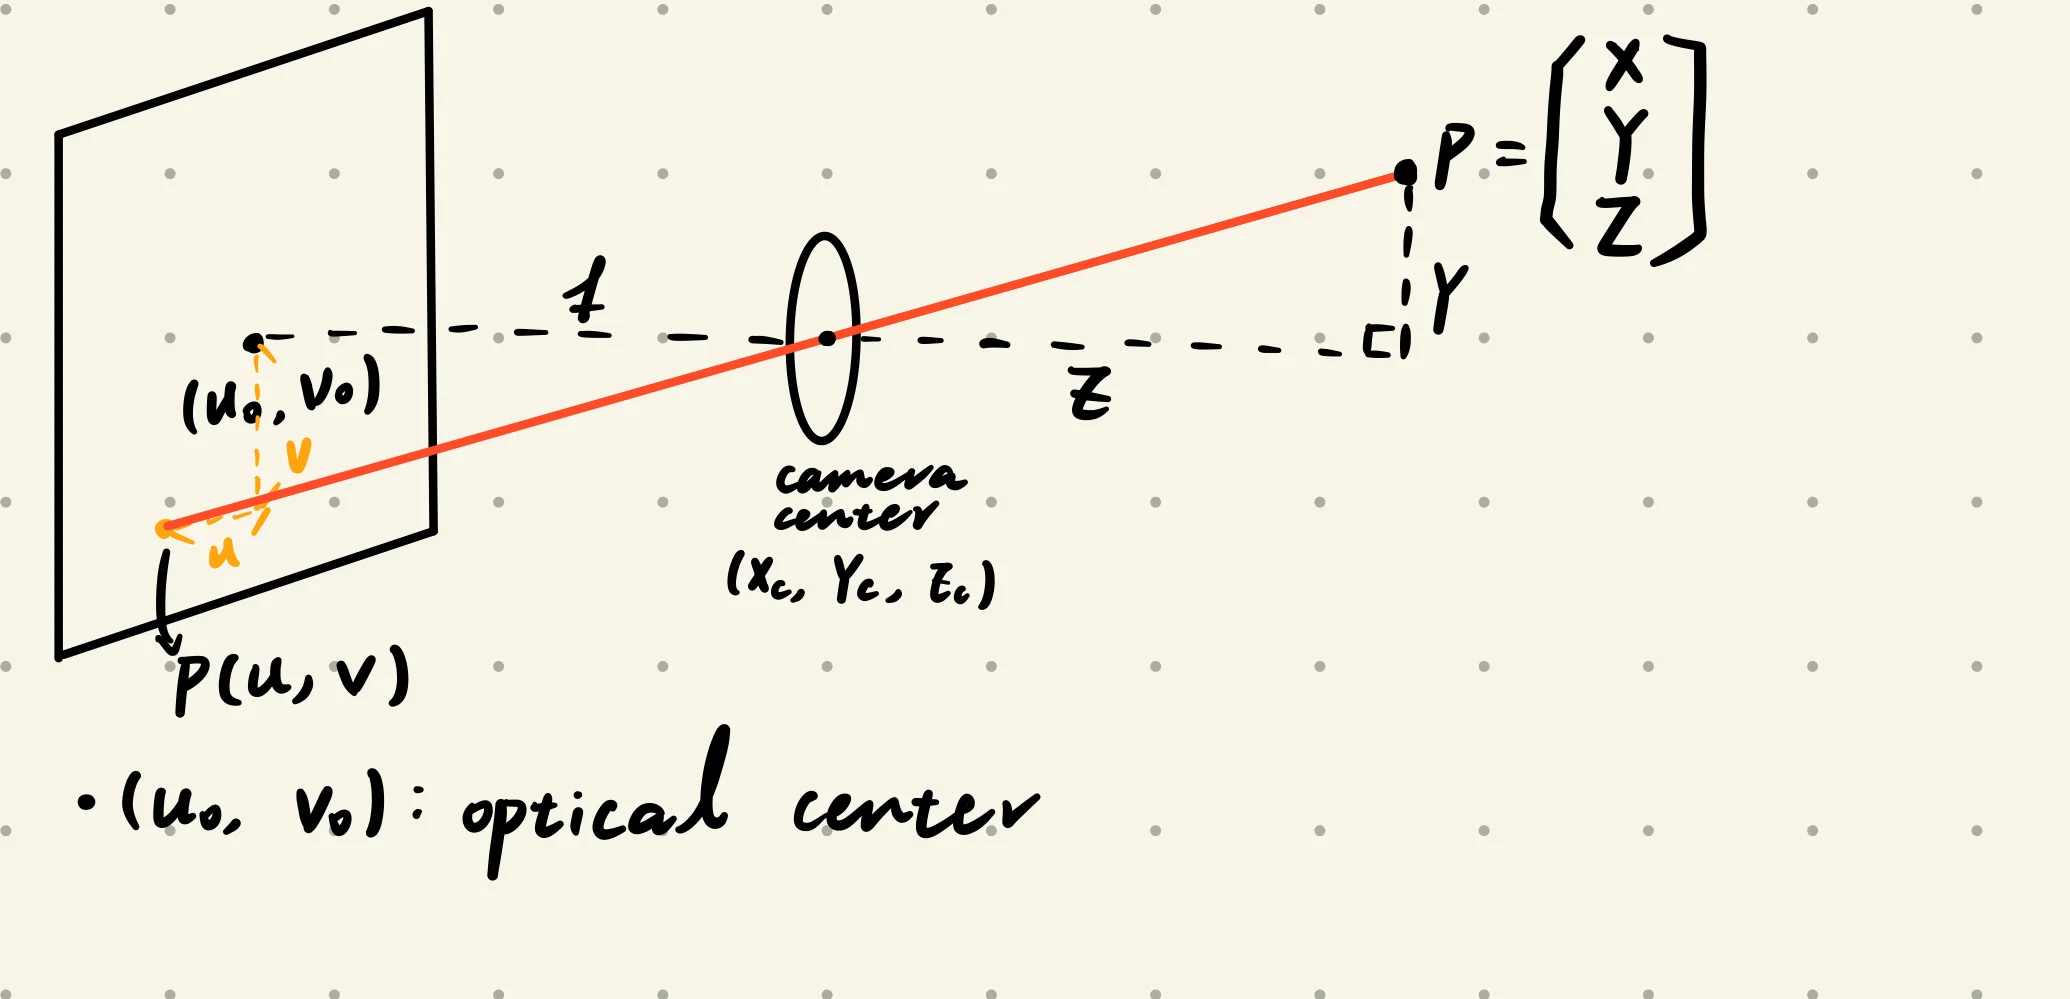 P = [X
Y
Z]
f
Y
(u₀, v₀)
Z
v
camera
center
u
(Xc, Yc, Zc)
P(u, v)
• (u₀, v₀) : optical center